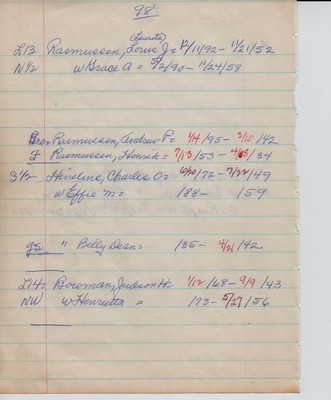 98
(Laurits)
L13 Rasmussen, Louis J= 12/11/92 - 11/21/52
N 1/2 w Grace A = 5/2/90 - 11/24/59
Bro Rasmussen, Andrew P= 1/14/95 - 3/10/42
F Rasmussen, Henrik= 7/13/53 - /34
S 1/2 Hiveline, Charles O= 10/20/72 - 7/22/49
w Effie M= 188 - 159
gs " Billy Dean= 135 - 4/21/42
L14 Bowman, Judson H= 1/12/68 - 9/9/43
NW w Henrietta = 173 - 5/27/56